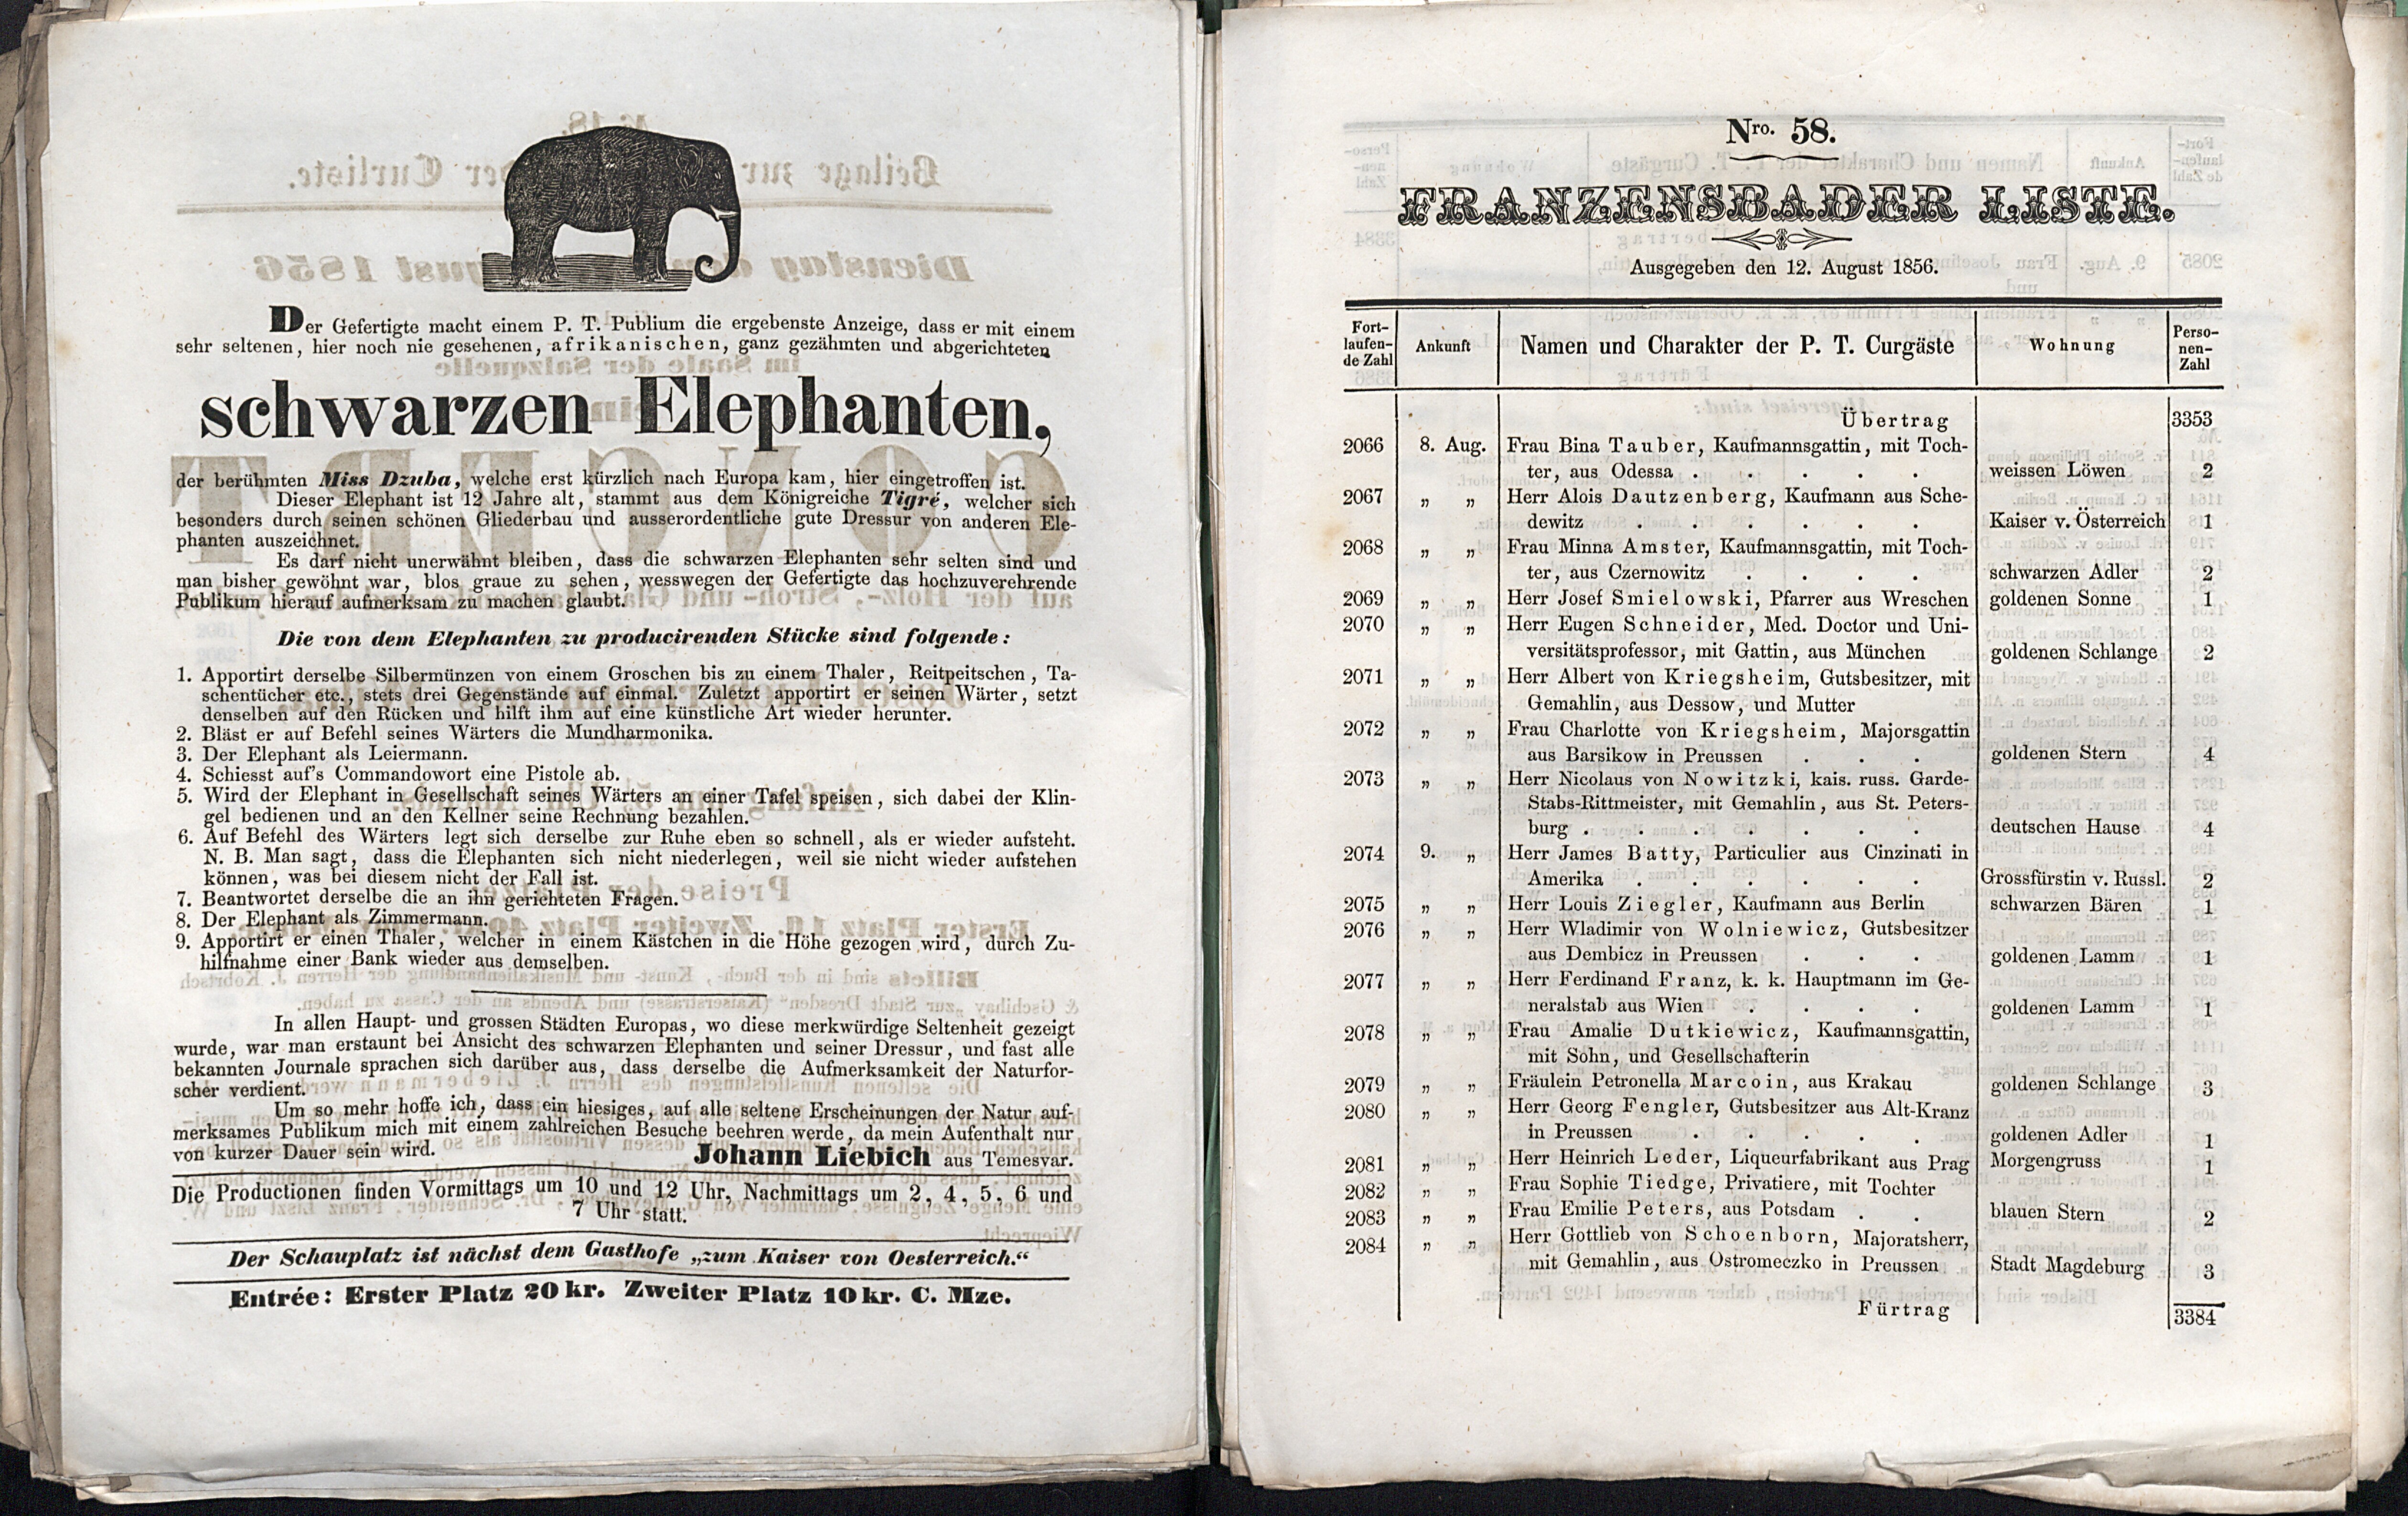 Der Gefertigte macht einem P. T. Publium die ergebenste Anzeige, dass er mit einem
sehr seltenen, hier noch nie gesehenen, afrikanischen, ganz gezähmten und abgerichteten
schwarzen Elephanten,
der berühmten Miss Dzuba, welche erst kürzlich nach Europa kam, hier eingetroffen ist.
Dieser Elephant ist 12 Jahre alt, stammt aus dem Königreiche Tigré, welcher sich
besonders durch seinen schönen Gliederbau und ausserordentliche gute Dressur von anderen Ele-
phanten auszeichnet.
Es darf nicht unerwähnt bleiben, dass die schwarzen Elephanten sehr selten sind und
man bisher gewöhnt war, blos graue zu sehen, wesswegen der Gefertigte das hochzuverehrende
Publikum hierauf aufmerksam zu machen glaubt.
Die von dem Elephanten zu producirenden Stücke sind folgende:
1. Apportirt derselbe Silbermünzen von einem Groschen bis zu einem Thaler, Reitpeitschen, Ta-
schentücher etc., stets drei Gegenstände auf einmal. Zuletzt apportirt er seinen Wärter, setzt
denselben auf den Rücken und hilft ihm auf eine künstliche Art wieder herunter.
2. Bläst er auf Befehl seines Wärters die Mundharmonika.
3. Der Elephant als Leiermann.
4. Schiesst auf's Commandowort eine Pistole ab.
5. Wird der Elephant in Gesellschaft seines Wärters an einer Tafel speisen, sich dabei der Klin-
gel bedienen und an den Kellner seine Rechnung bezahlen.
6. Auf Befehl des Wärters legt sich derselbe zur Ruhe eben so schnell, als er wieder aufsteht.
N. B. Man sagt, dass die Elephanten sich nicht niederlegen, weil sie nicht wieder aufstehen
können, was bei diesem nicht der Fall ist.
7. Beantwortet derselbe die an ihn gerichteten Fragen.
8. Der Elephant als Zimmermann.
9. Apportirt er einen Thaler, welcher in einem Kästchen in die Höhe gezogen wird, durch Zu-
hilfnahme einer Bank wieder aus demselben.
In allen Haupt- und grossen Städten Europas, wo diese merkwürdige Seltenheit gezeigt
wurde, war man erstaunt bei Ansicht des schwarzen Elephanten und seiner Dressur, und fast alle
bekannten Journale sprachen sich darüber aus, dass derselbe die Aufmerksamkeit der Naturfor-
scher verdient.
Um so mehr hoffe ich, dass ein hiesiges, auf alle seltene Erscheinungen der Natur auf-
merksames Publikum mich mit einem zahlreichen Besuche beehren werde, da mein Aufenthalt nur
von kurzer Dauer sein wird. Johann Liebich aus Temesvar.
Die Productionen finden Vormittags um 10 und 12 Uhr, Nachmittags um 2, 4, 5, 6 und
7 Uhr statt.
Der Schauplatz ist nächst dem Gasthofe „zum Kaiser von Oesterreich.“
Entrée: Erster Platz 20 kr. Zweiter Platz 10 kr. C. Mze.
Nro. 58.
FRANZENSBADER LISTE.
Ausgegeben den 12. August 1856.
Fort-
laufen-
de Zahl Ankunft Namen und Charakter der P. T. Curgäste Wohnung Perso-
nen-
Zahl
Übertrag 3353
2066 8. Aug. Frau Bina Tauber, Kaufmannsgattin, mit Toch-
ter, aus Odessa . . . . . weissen Löwen 2
2067 „ „ Herr Alois Dautzenberg, Kaufmann aus Sche-
dewitz . . . . . . Kaiser v. Österreich 1
2068 „ „ Frau Minna Amster, Kaufmannsgattin, mit Toch-
ter, aus Czernowitz . . . . schwarzen Adler 2
2069 „ „ Herr Josef Smielowski, Pfarrer aus Wreschen goldenen Sonne 1
2070 „ „ Herr Eugen Schneider, Med. Doctor und Uni-
versitätsprofessor, mit Gattin, aus München goldenen Schlange 2
2071 „ „ Herr Albert von Kriegsheim, Gutsbesitzer, mit
Gemahlin, aus Dessow, und Mutter
2072 „ „ Frau Charlotte von Kriegsheim, Majorsgattin
aus Barsikow in Preussen . . . goldenen Stern 4
2073 „ „ Herr Nicolaus von Nowitzki, kais. russ. Garde-
Stabs-Rittmeister, mit Gemahlin, aus St. Peters-
burg . . . . . . . deutschen Hause 4
2074 9. „ Herr James Batty, Particulier aus Cinzinati in
Amerika . . . . . . Grossfürstin v. Russl. 2
2075 „ „ Herr Louis Ziegler, Kaufmann aus Berlin schwarzen Bären 1
2076 „ „ Herr Wladimir von Wolniewicz, Gutsbesitzer
aus Dembicz in Preussen . . . goldenen Lamm 1
2077 „ „ Herr Ferdinand Franz, k. k. Hauptmann im Ge-
neralstab aus Wien . . . . goldenen Lamm 1
2078 „ „ Frau Amalie Dutkiewicz, Kaufmannsgattin,
mit Sohn, und Gesellschafterin
2079 „ „ Fräulein Petronella Marcoin, aus Krakau goldenen Schlange 3
2080 „ „ Herr Georg Fengler, Gutsbesitzer aus Alt-Kranz
in Preussen . . . . . goldenen Adler 1
2081 „ „ Herr Heinrich Leder, Liqueurfabrikant aus Prag Morgengruss 1
2082 „ „ Frau Sophie Tiedge, Privatiere, mit Tochter
2083 „ „ Frau Emilie Peters, aus Potsdam . . blauen Stern 2
2084 „ „ Herr Gottlieb von Schoenborn, Majoratsherr,
mit Gemahlin, aus Ostromeczko in Preussen Stadt Magdeburg 3
Fürtrag 3384